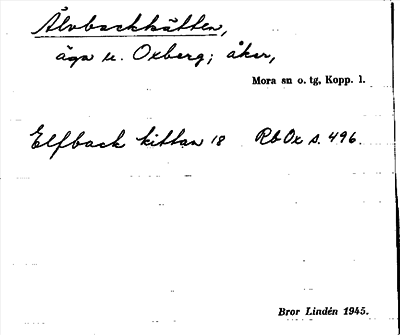 Älvbackkätten,
äga u. Oxberg; åker,
Mora sn o. tg, Kopp. l.
Elfback kittan 18 Rb Ox s. 496.
Bror Lindén 1945.